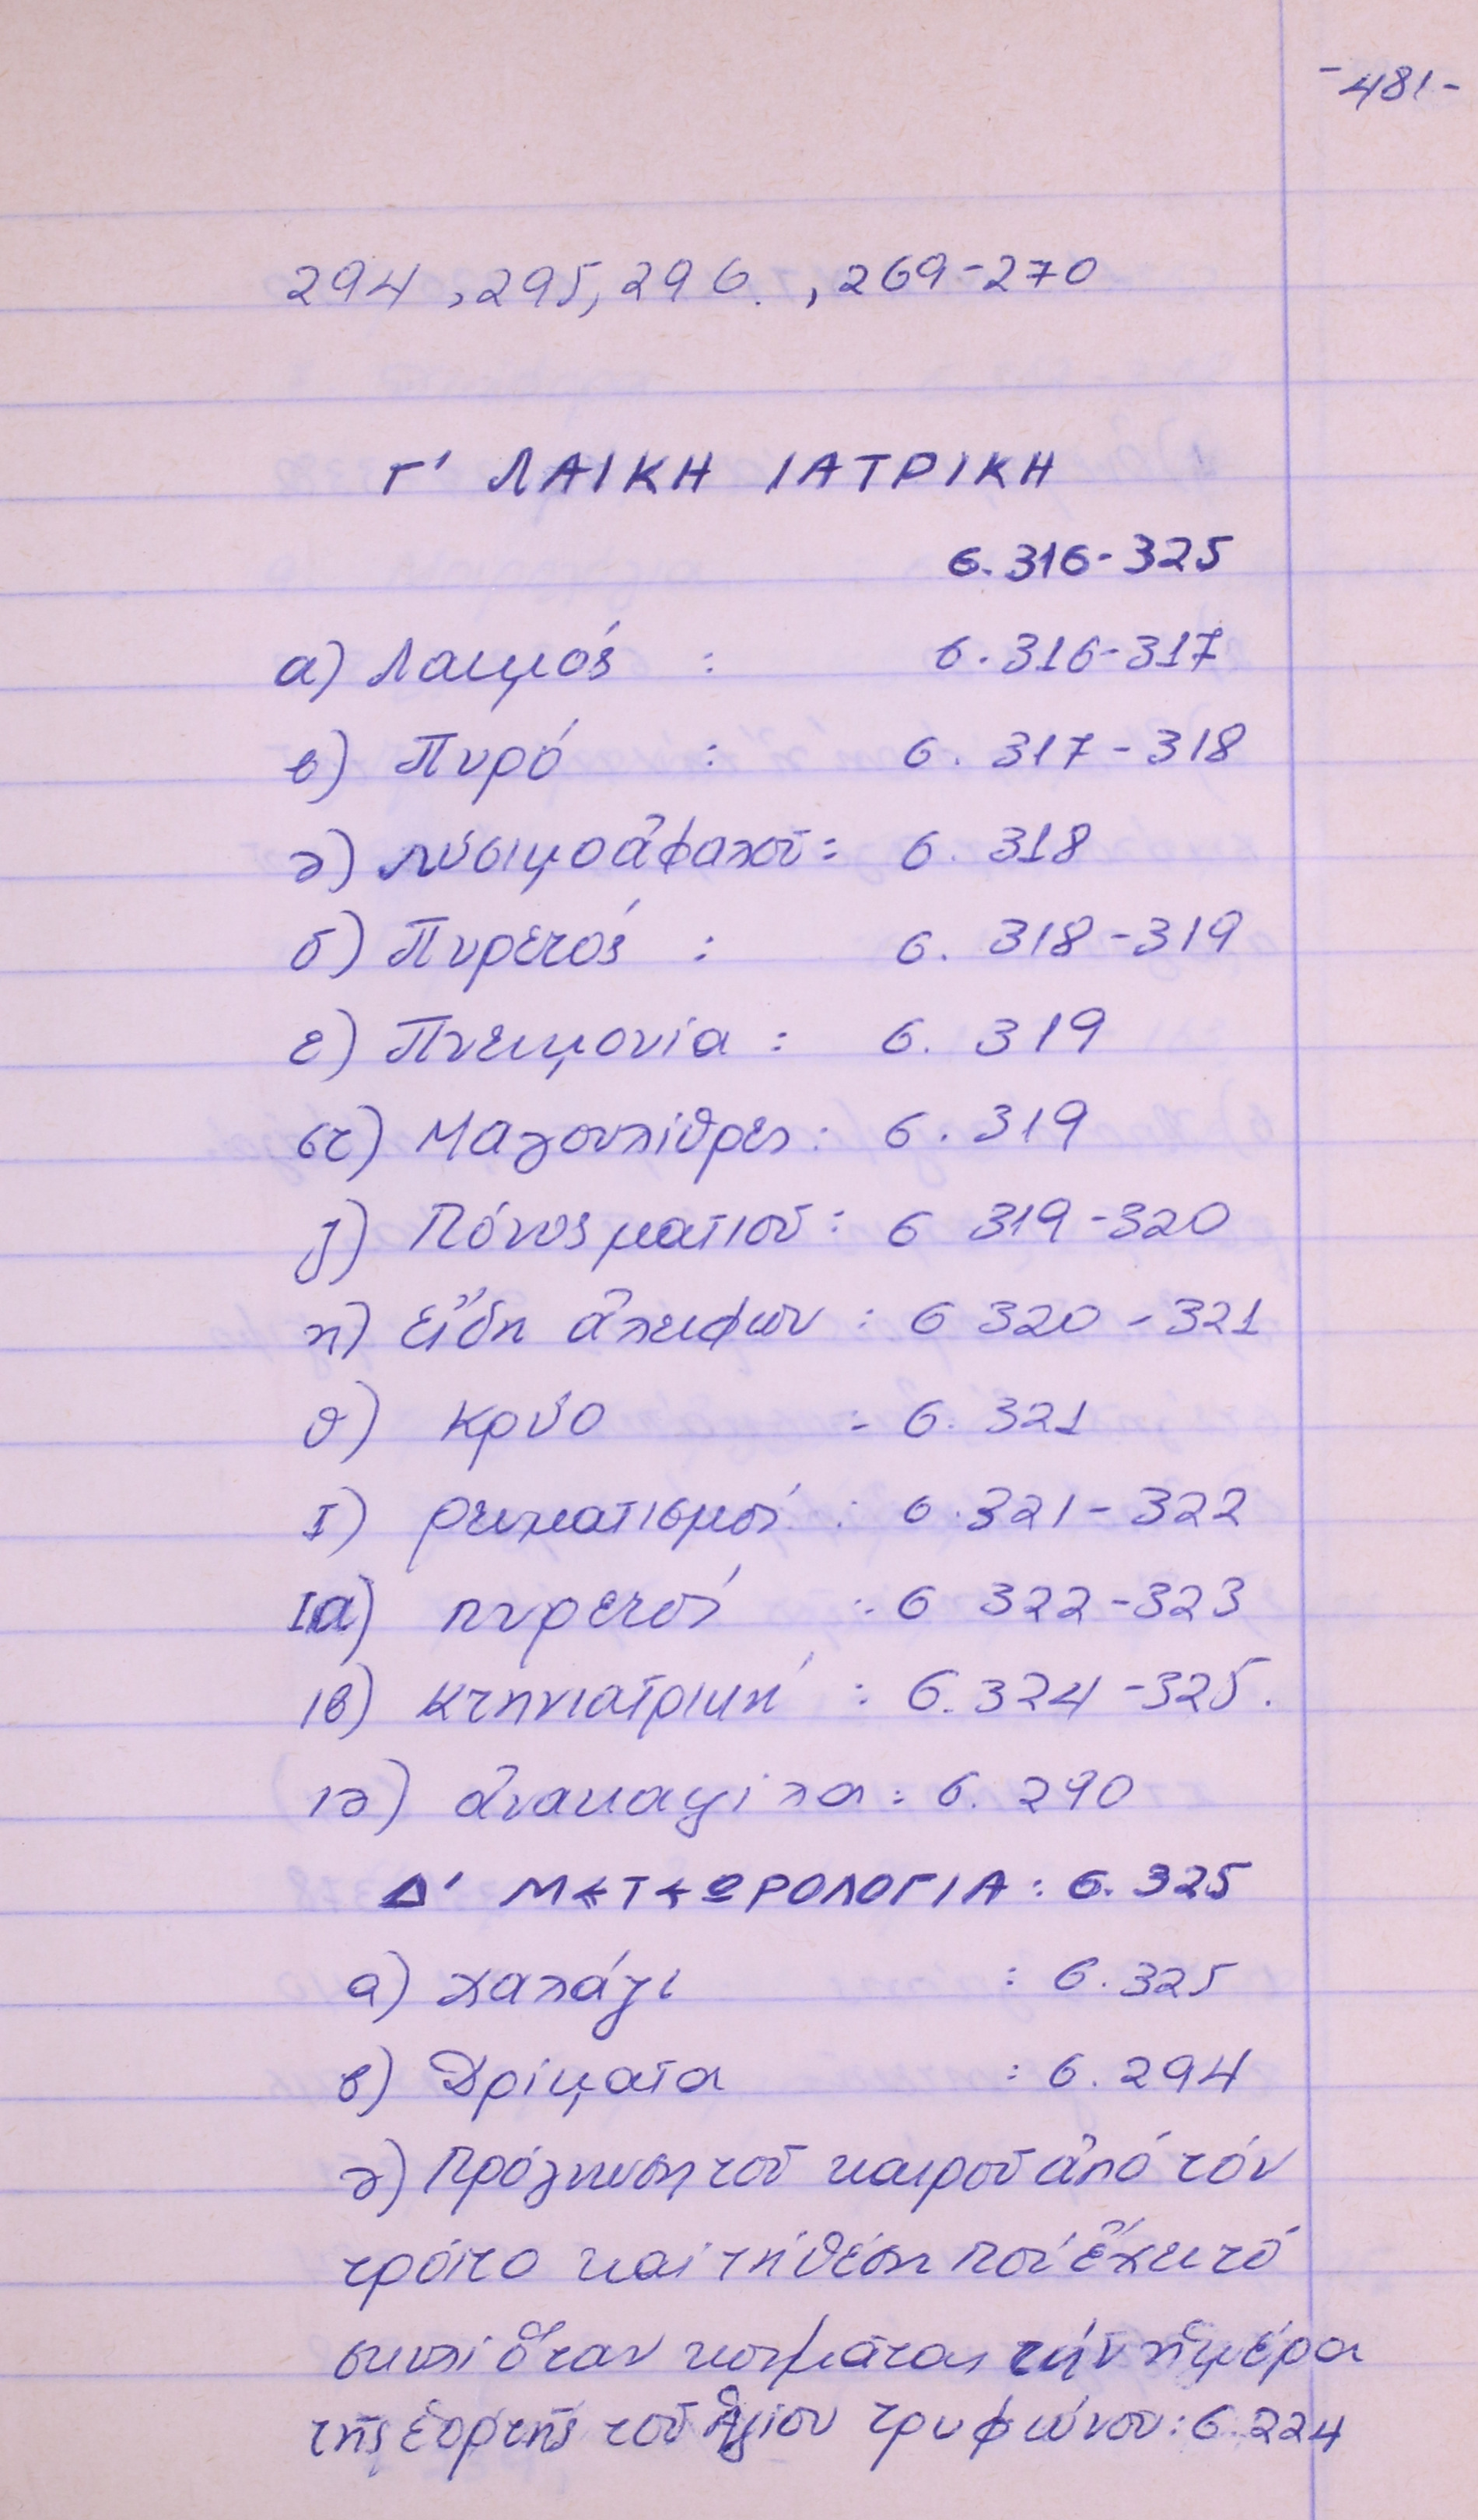 -481-
294, 295, 296. , 269-270
Γ' ΛΑΙΚΗ ΙΑΤΡΙΚΗ
σ. 316-325
α) Λαιμός : σ. 316-317
β) Πυρό : σ. 317-318
γ) λύσιμο ἀφαλοῦ : σ. 318
δ) Πυρετός : σ. 318-319
ε) Πνευμονία : σ. 319
στ) Μαγουλίθρες : σ. 319
ζ) Πόνος ματιοῦ : σ 319-320
η) εἴδη ἀλειφῶν : σ 320-321
θ) κρύο : σ. 321
Ι) ρευματισμοί : σ. 321-322
Ια) πυρετοί : σ 322-323
ιβ) κτηνιατρική : σ. 324-325.
ιγ) ἀνακαψίλα : σ. 290
Δ' ΜΕΤΕΩΡΟΛΟΓΙΑ : σ. 325
α) χαλάζι : σ. 325
β) Δρίματα : σ. 294
γ) Πρόγνωση τοῦ καιροῦ ἀπό τόν
τρόπο καί τή θέση πού ἔχει τό
σκυλί ὅταν κοιμᾶται τήν ἡμέρα
τῆς ἑορτῆς τοῦ Ἁγίου τρυφώνου : σ. 224